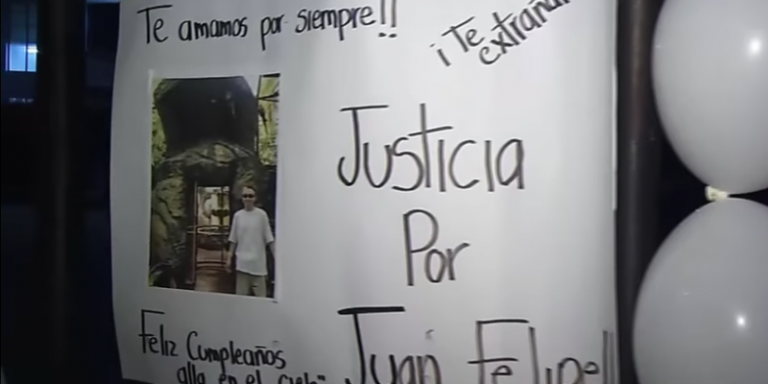 Te amamos por siempre!!
¡Te
Justicia
Por
Juan Felipe!!
Feliz Cumpleaños
alla en el cielo